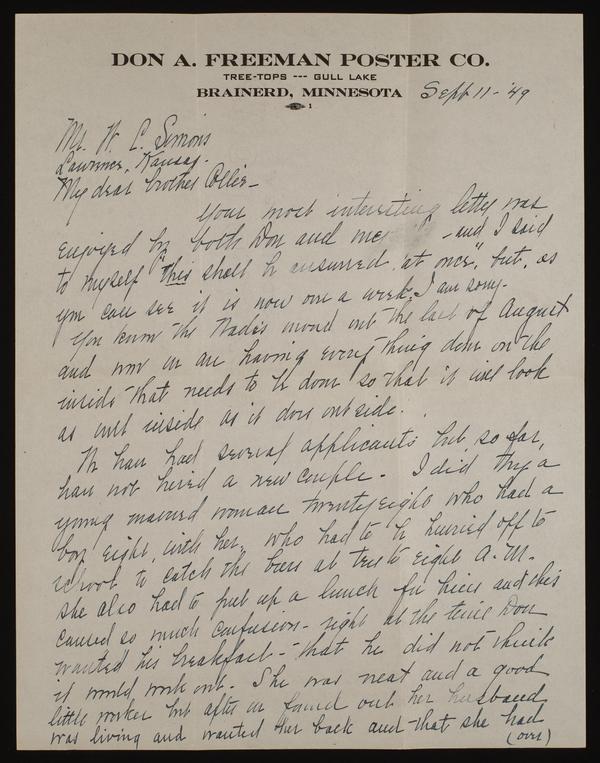 DON A. FREEMAN POSTER CO.
TREE-TOPS --- GULL LAKE
BRAINERD, MINNESOTA
1
Sept 11-'49
Mr. W. C. Simons
Lawrence, Kansas.
My dear brother Collie-
Your most interesting letter was
enjoyed by both Don and me - and I said
to myself "This shall be answered at once", but, as
you can see it is now over a week. I am sorry.
You know the Wades moved out the last of August
and now we are having everything done on the
inside that needs to be done so that it will look
as well inside as it does outside.
We have had several applicants but, so far,
have not hired a new couple. I did try a
young married woman twenty eight who had a
boy eight, with her, who had to be hurried off to
school to catch the bus at ten to eight A.M.
She also had to put up a lunch for him and this
caused so much confusion - right at the time Don
wanted his breakfast - that he did not think
it would work out. She was neat and a good
little worker but after we found out her husband
was living and wanted her back and that she had
(over)